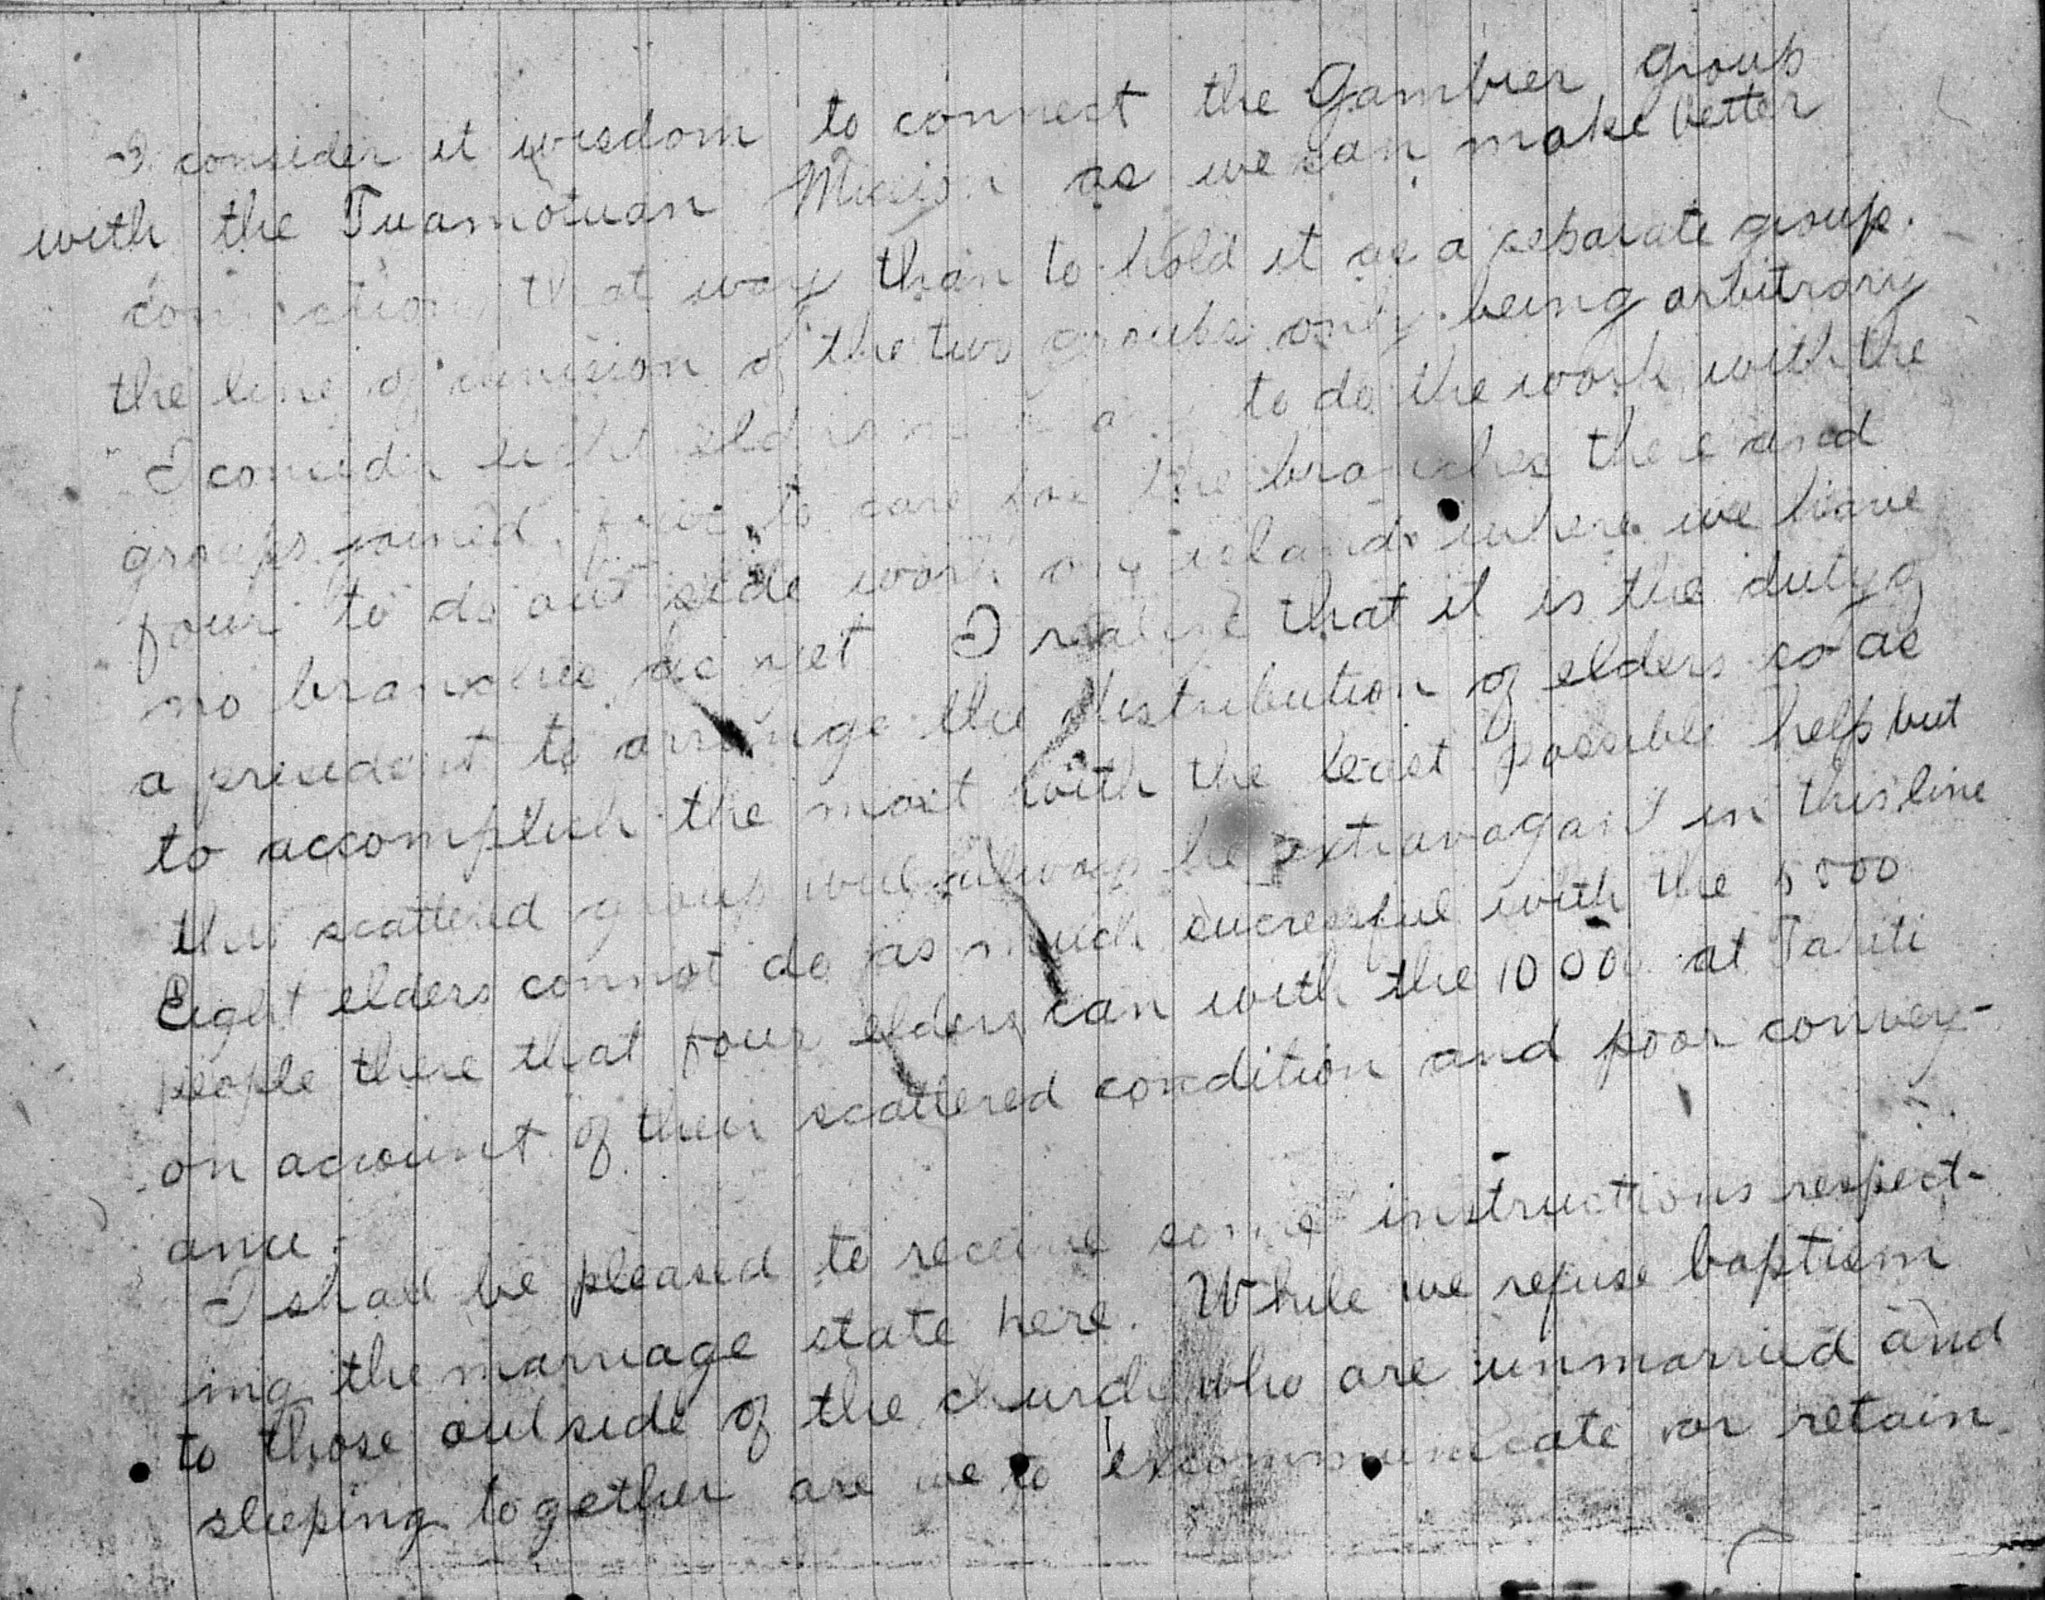 I consider it wisdom to connect the Gambier group
with the Tuamotuan Mission as we can make better
connection that way than to hold it as a separate group.
the line of division of the two groups only being arbitrary
I consider eight elders to do the work with the
groups joined, four to care for the branches there and
four to do out side work on islands where we have
no branches as yet I realize that it is the duty of
a president to arrange the distribution of elders so as
to accomplish the most with the least possible help but
this scattered group will always be extravagant in this line
Eight elders connot do as much sucressful with the 5500
people there that four elders can with the 1000 at Tahiti
on account of their scattered condition and poor convey-
ance.
I shall be pleased to receive some instructions respect-
ing the marriage state here. While we refuse baptism
to those outside of the church who are unmarried and
sleeping together are we to excommunicate or retain